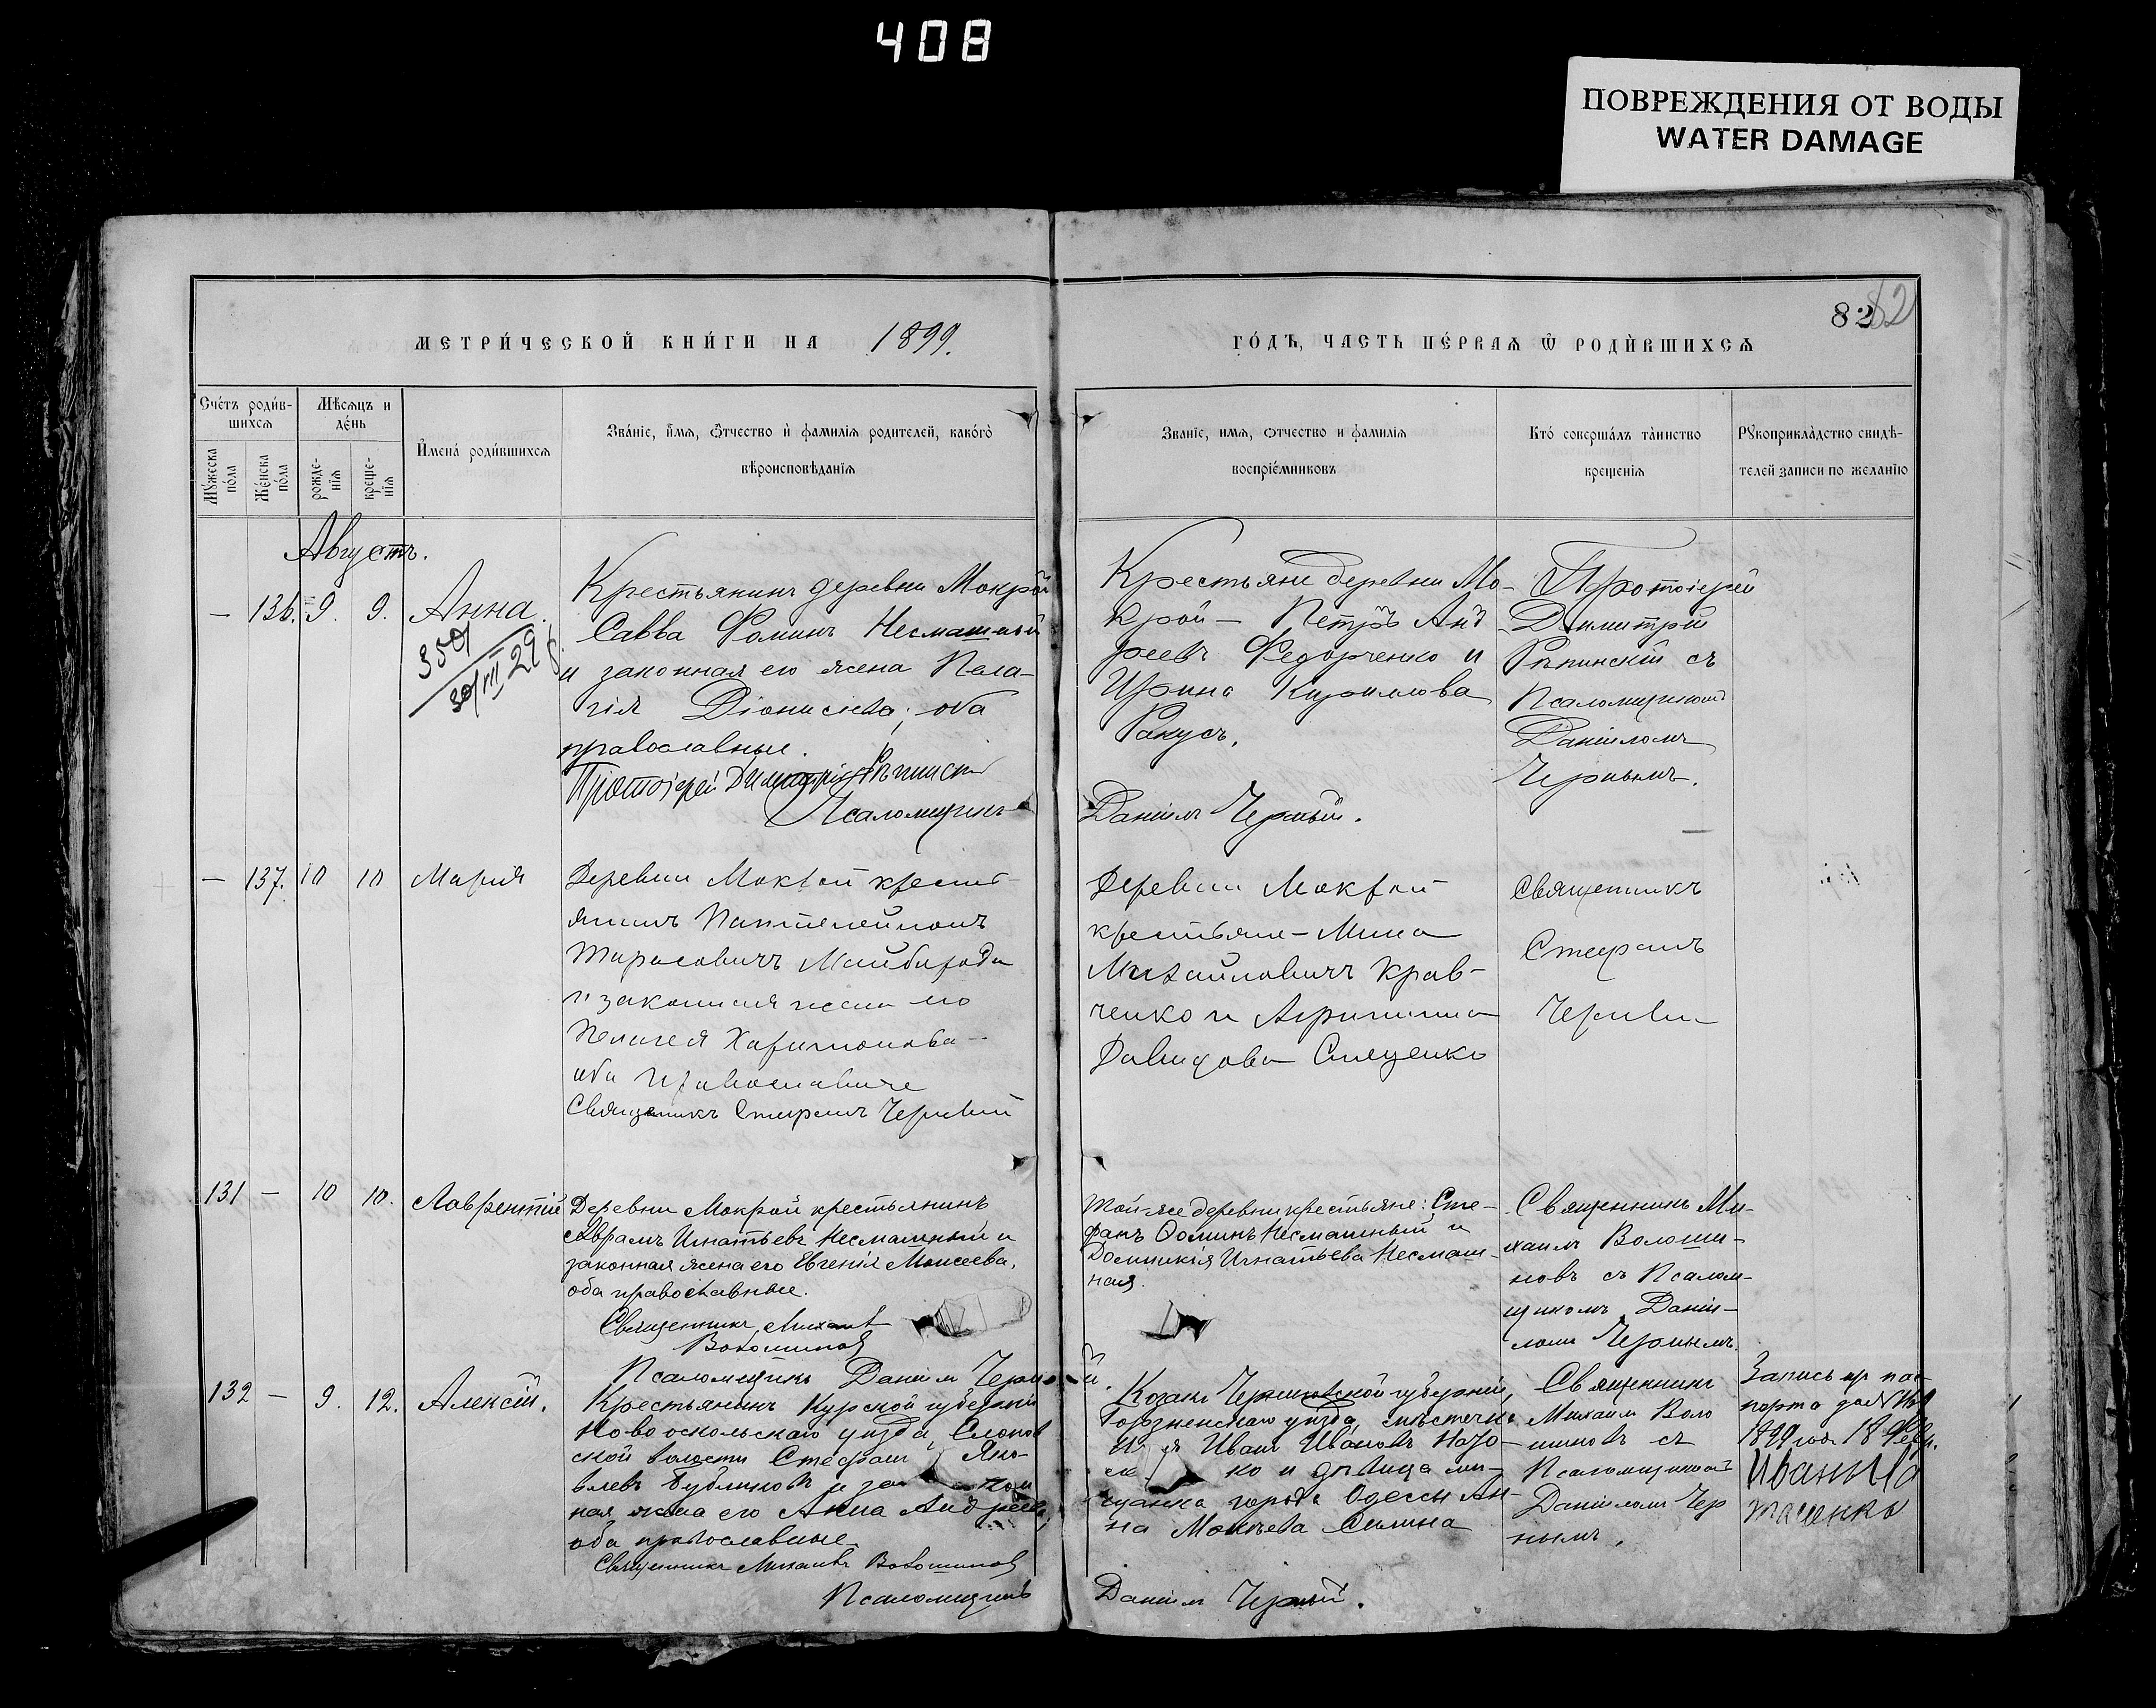 408
ПОВРЕЖДЕНИЯ ОТ ВОДЫ
WATER DAMAGE
82
МЕТРИ́ЧЕСКОЙ КНИ́ГИ НА 1899.
ГО́ДЪ, ЧАСТЬ ПЕ́РВАѦ Ѿ РОДИ́ВШИХСѦ
Сче́тъ роди́в-
шихсѧ
Мѣ́сѧцъ и
де́нь
Мꙋжеска
по́ла
Же́нска
по́ла
рожде-
нїѧ
креще-
нїѧ
Имена́ роди́вшихсѧ
Зва́нїе, и́мѧ, ѻ́тчество и҆ фами́лїѧ роди́телей, како́гѡ
вѣроисповѣ́данїѧ
Зва́нїе, имѧ, ѻтчество и фамилїѧ
воспрїе́мниковъ
Кто́ соверша́лъ та́инство
креще́нїѧ
Рꙋкоприкла́дство свидѣ́-
телей записи по жела́нїю
Августъ.
— 136. 9. 9. Анна.
350
30/III 29 г.
Крестьянинъ деревни Мокрой
Савва Фоминъ Несмашный
и законная его жена Пела-
гія Діонисіева; оба
православные.
Протоіерей Димитрій Рѣпинскій
Псаломщикъ
Крестьяне деревни Мо-
крой — Петръ Анд-
реевъ Федорченко и
Ирина Кириллова
Ракусъ.
Даніилъ Черный.
Протоіерей
Димитрій
Рѣпинскій съ
Псаломщикомъ
Даніиломъ
Чернымъ.
— 137. 10 10 Марія
Деревни Мокрой кресть-
янинъ Пантелеймонъ
Тарасовичъ Майборода
и законная жена его
Пелагея Харитонова —
оба православные
Священникъ Стефанъ Черный
Деревни Мокрой
крестьяне — Мина
Михайловичъ Крав-
ченко и Агрипина
Давидова Слеценко
Священникъ
Стефанъ
131 — 10 10. Лаврентій
Деревни Мокрой крестьянинъ
Аврамъ Игнатьевъ Несмашный и
законная жена его Евгенія Моисеева,
оба православные.
Священникъ Михаилъ
Волошиновъ
Псаломщикъ Даніилъ Черный.
Той-же деревни крестьяне: Сте-
фанъ Ѳоминъ Несмашный и
Домникія Игнатьева Несмаш-
ная.
Священникъ Ми-
хаилъ Волоши-
новъ съ Псалом-
щикомъ Даніи-
ломъ Чернымъ.
132 — 9. 12. Алексій.
Крестьянинъ Курской губерніи
Новооскольскаго уѣзда, Слонов-
ской волости Стефанъ Яко-
влевъ Бубликовъ и закон
ная жена его Анна Андреева,
оба православные.
Священникъ Михаилъ Волошиновъ
Псаломщикъ
Козакъ Черниговской губерніи,
уѣзда, мѣстечка
Иванъ Ивановъ
ко и дѣвица мѣ-
щанка города Одессы Ан-
на Моисеева Силина
Даніилъ Черный.
Священникъ
Михаилъ Воло
шиновъ съ
Псаломщикомъ
Даніиломъ Чер
нымъ.
Запись пр пас-
порта
1899 года 18 Февр.
Иванъ